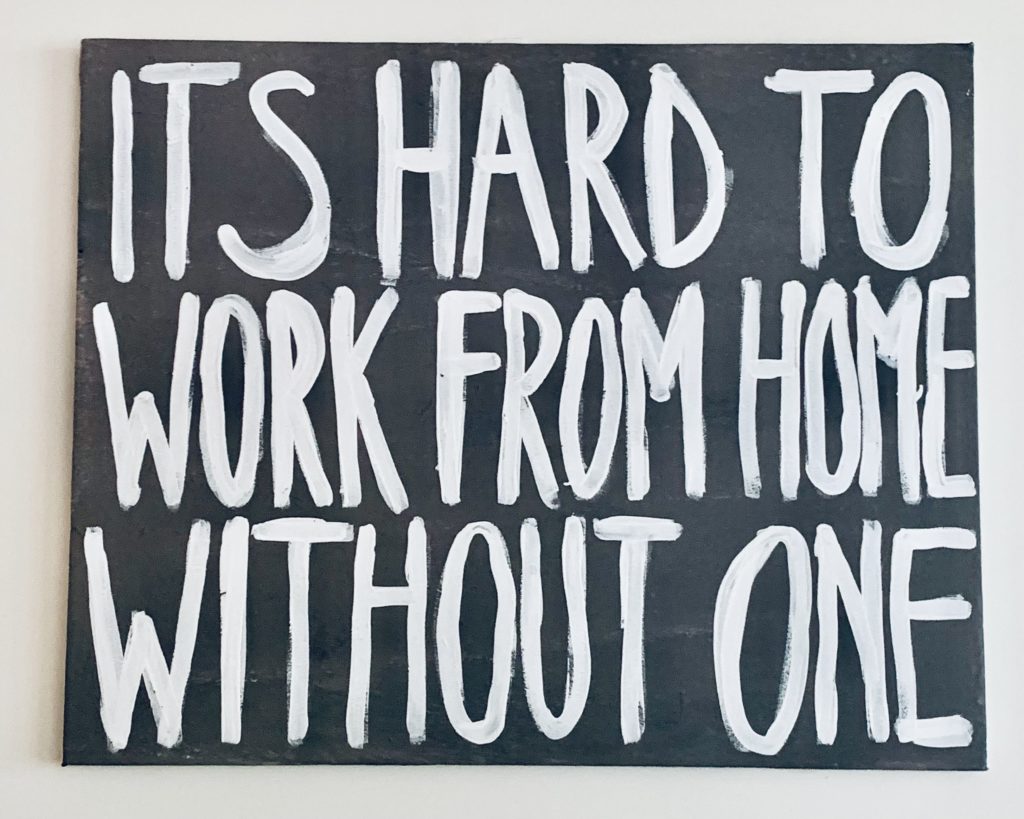 ITS HARD TO
WORK FROM HOME
WITHOUT ONE